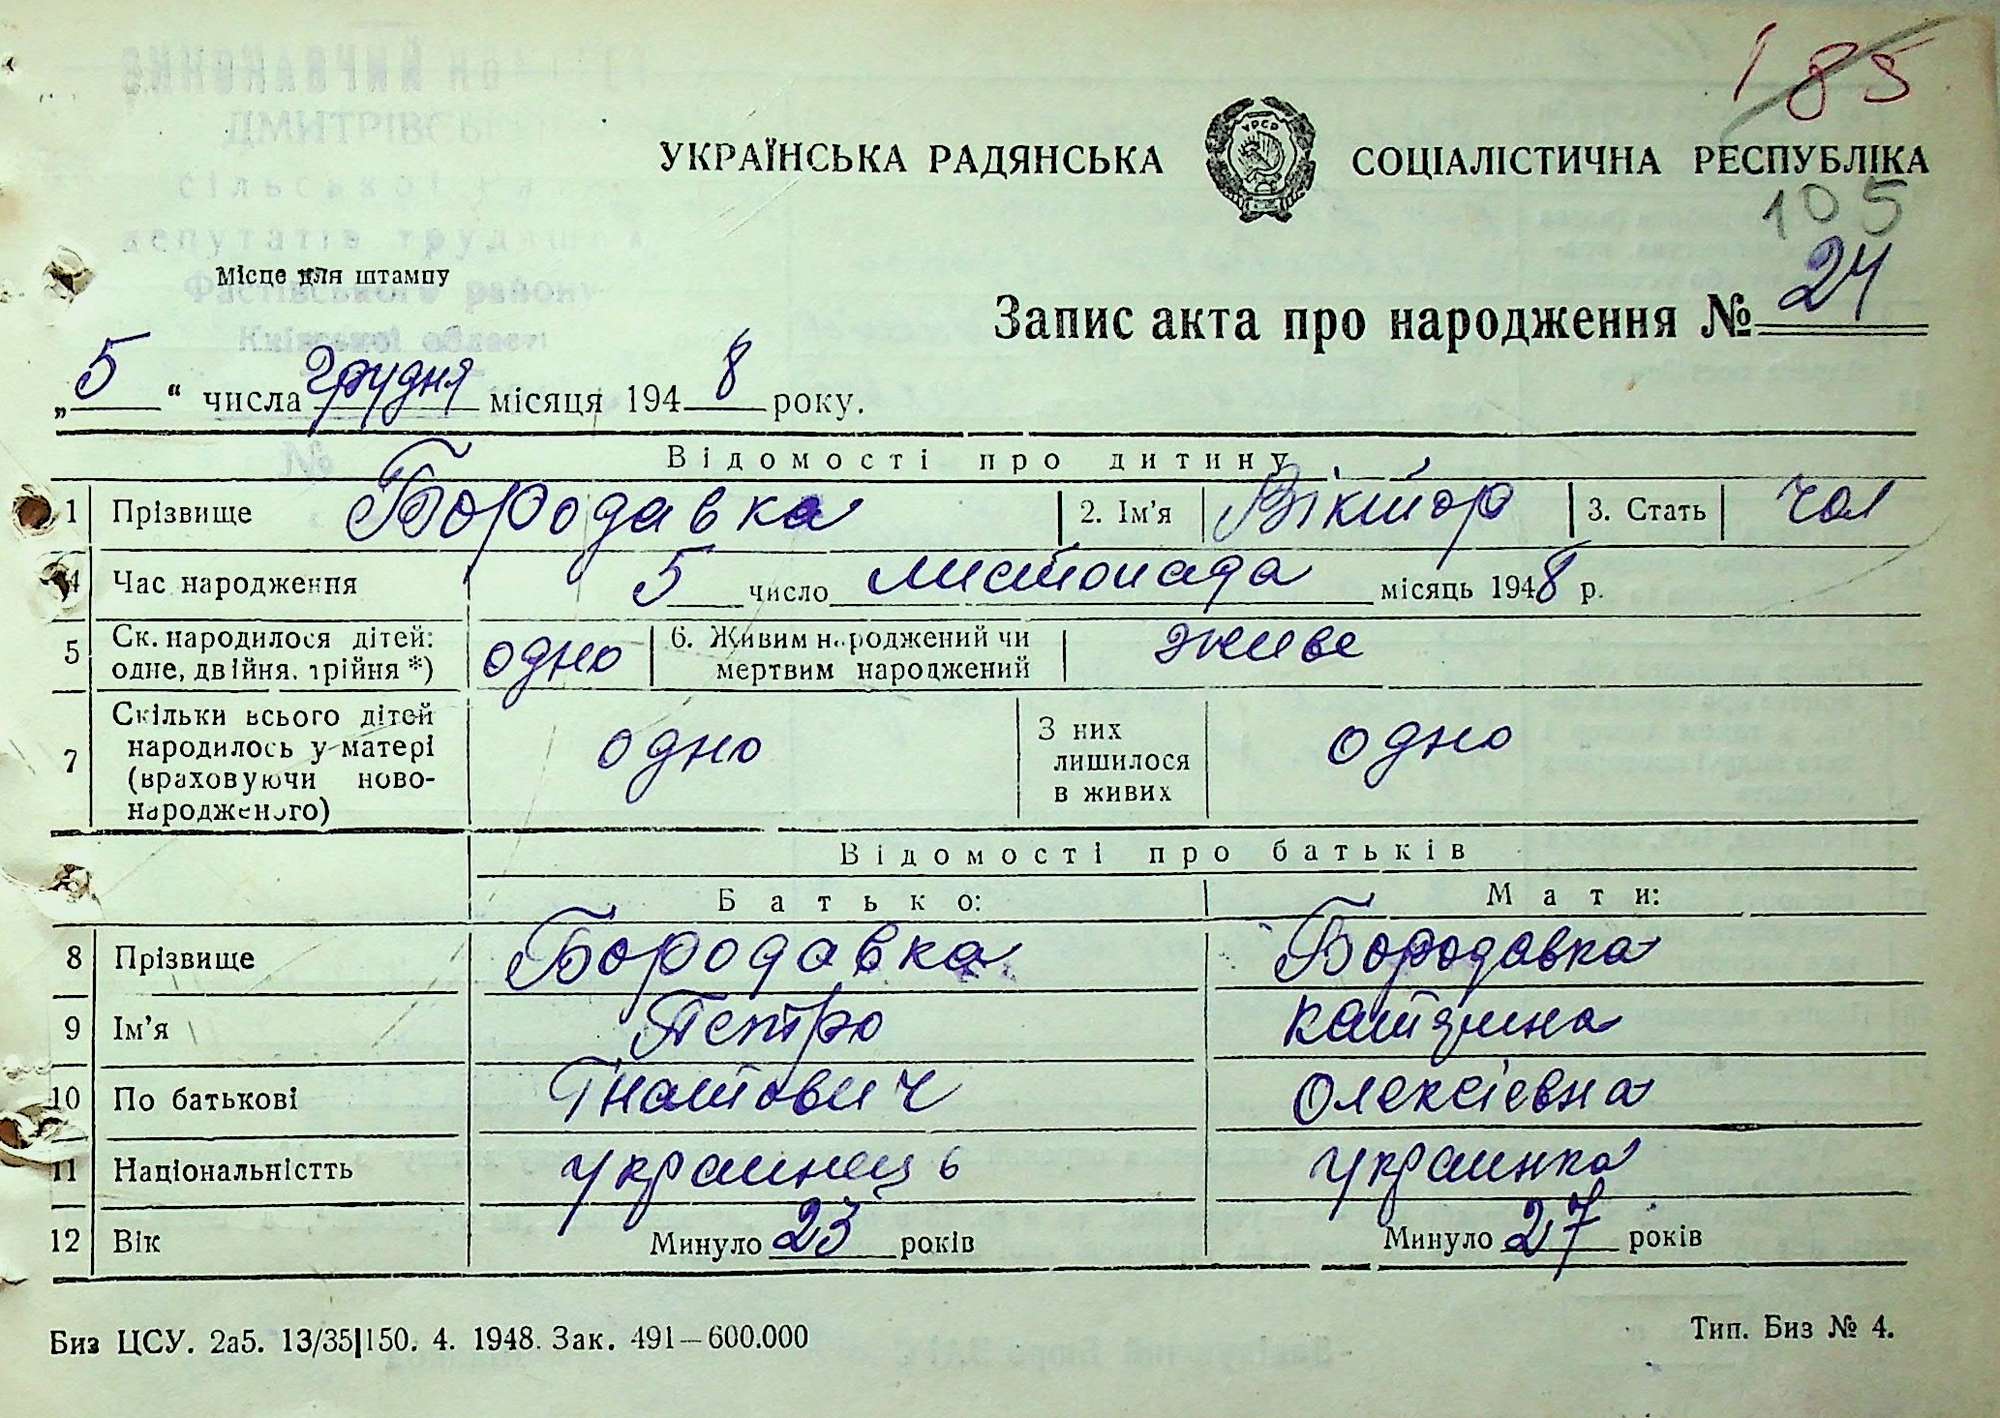 185
УКРАЇНСЬКА РАДЯНСЬКА СОЦІАЛІСТИЧНА РЕСПУБЛІКА
УРСР
105
Місце для штампу
Запис акта про народження № 24
„5“ числа грудня місяця 1948 року.
Відомості про дитину
1 Прізвище Бородавка 2. Ім'я Віктор 3. Стать чол
4 Час народження 5 число листопада місяць 1948 р.
5 Ск. народилося дітей: одне, двійня, трійня *) одно 6. Живим народжений чи мертвим народжений живе
7 Скільки всього дітей народилось у матері (враховуючи ново-народженого) одно З них лишилося в живих одно
Відомості про батьків
Батько: Мати:
8 Прізвище Бородавка Бородавка
9 Ім'я Петро Катерина
10 По батькові Гнатович Олексіевна
11 Національністть украинець украинка
12 Вік Минуло 23 років Минуло 27 років
Биз ЦСУ. 2а5. 13/35|150. 4. 1948. Зак. 491—600.000 Тип. Биз № 4.